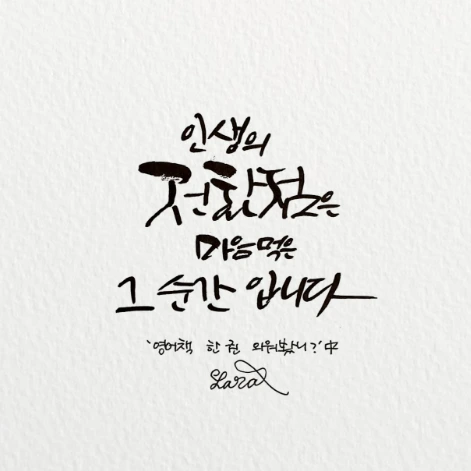 인생의
전환점은
마음먹은
그 순간 입니다
'영어책 한 권 외워봤니?' 中
Lara